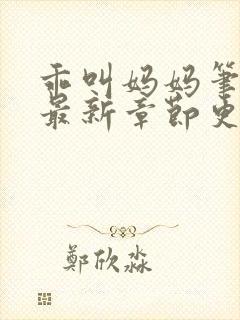 乖叫妈妈笔
最新章节史
鄭欣淼